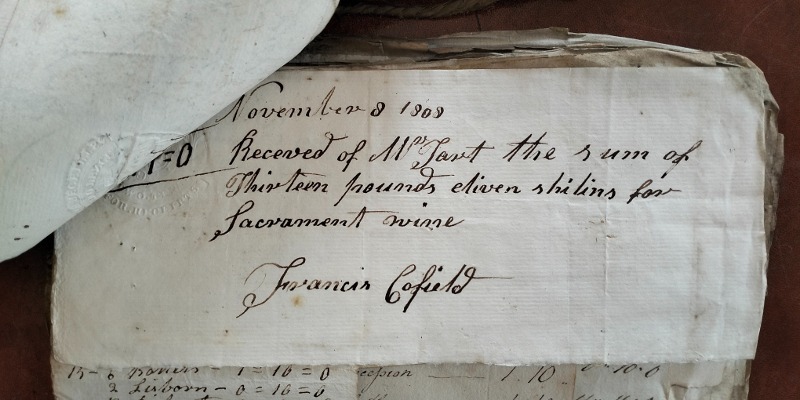 November 8 1808
Receved of Mrs Tart the sum of
Thirteen pounds eliven shilins for
Sacrament wine
Francis Cofield
1 = 16 = 0
1. 10
2 Lisborn - 0 = 16 = 0